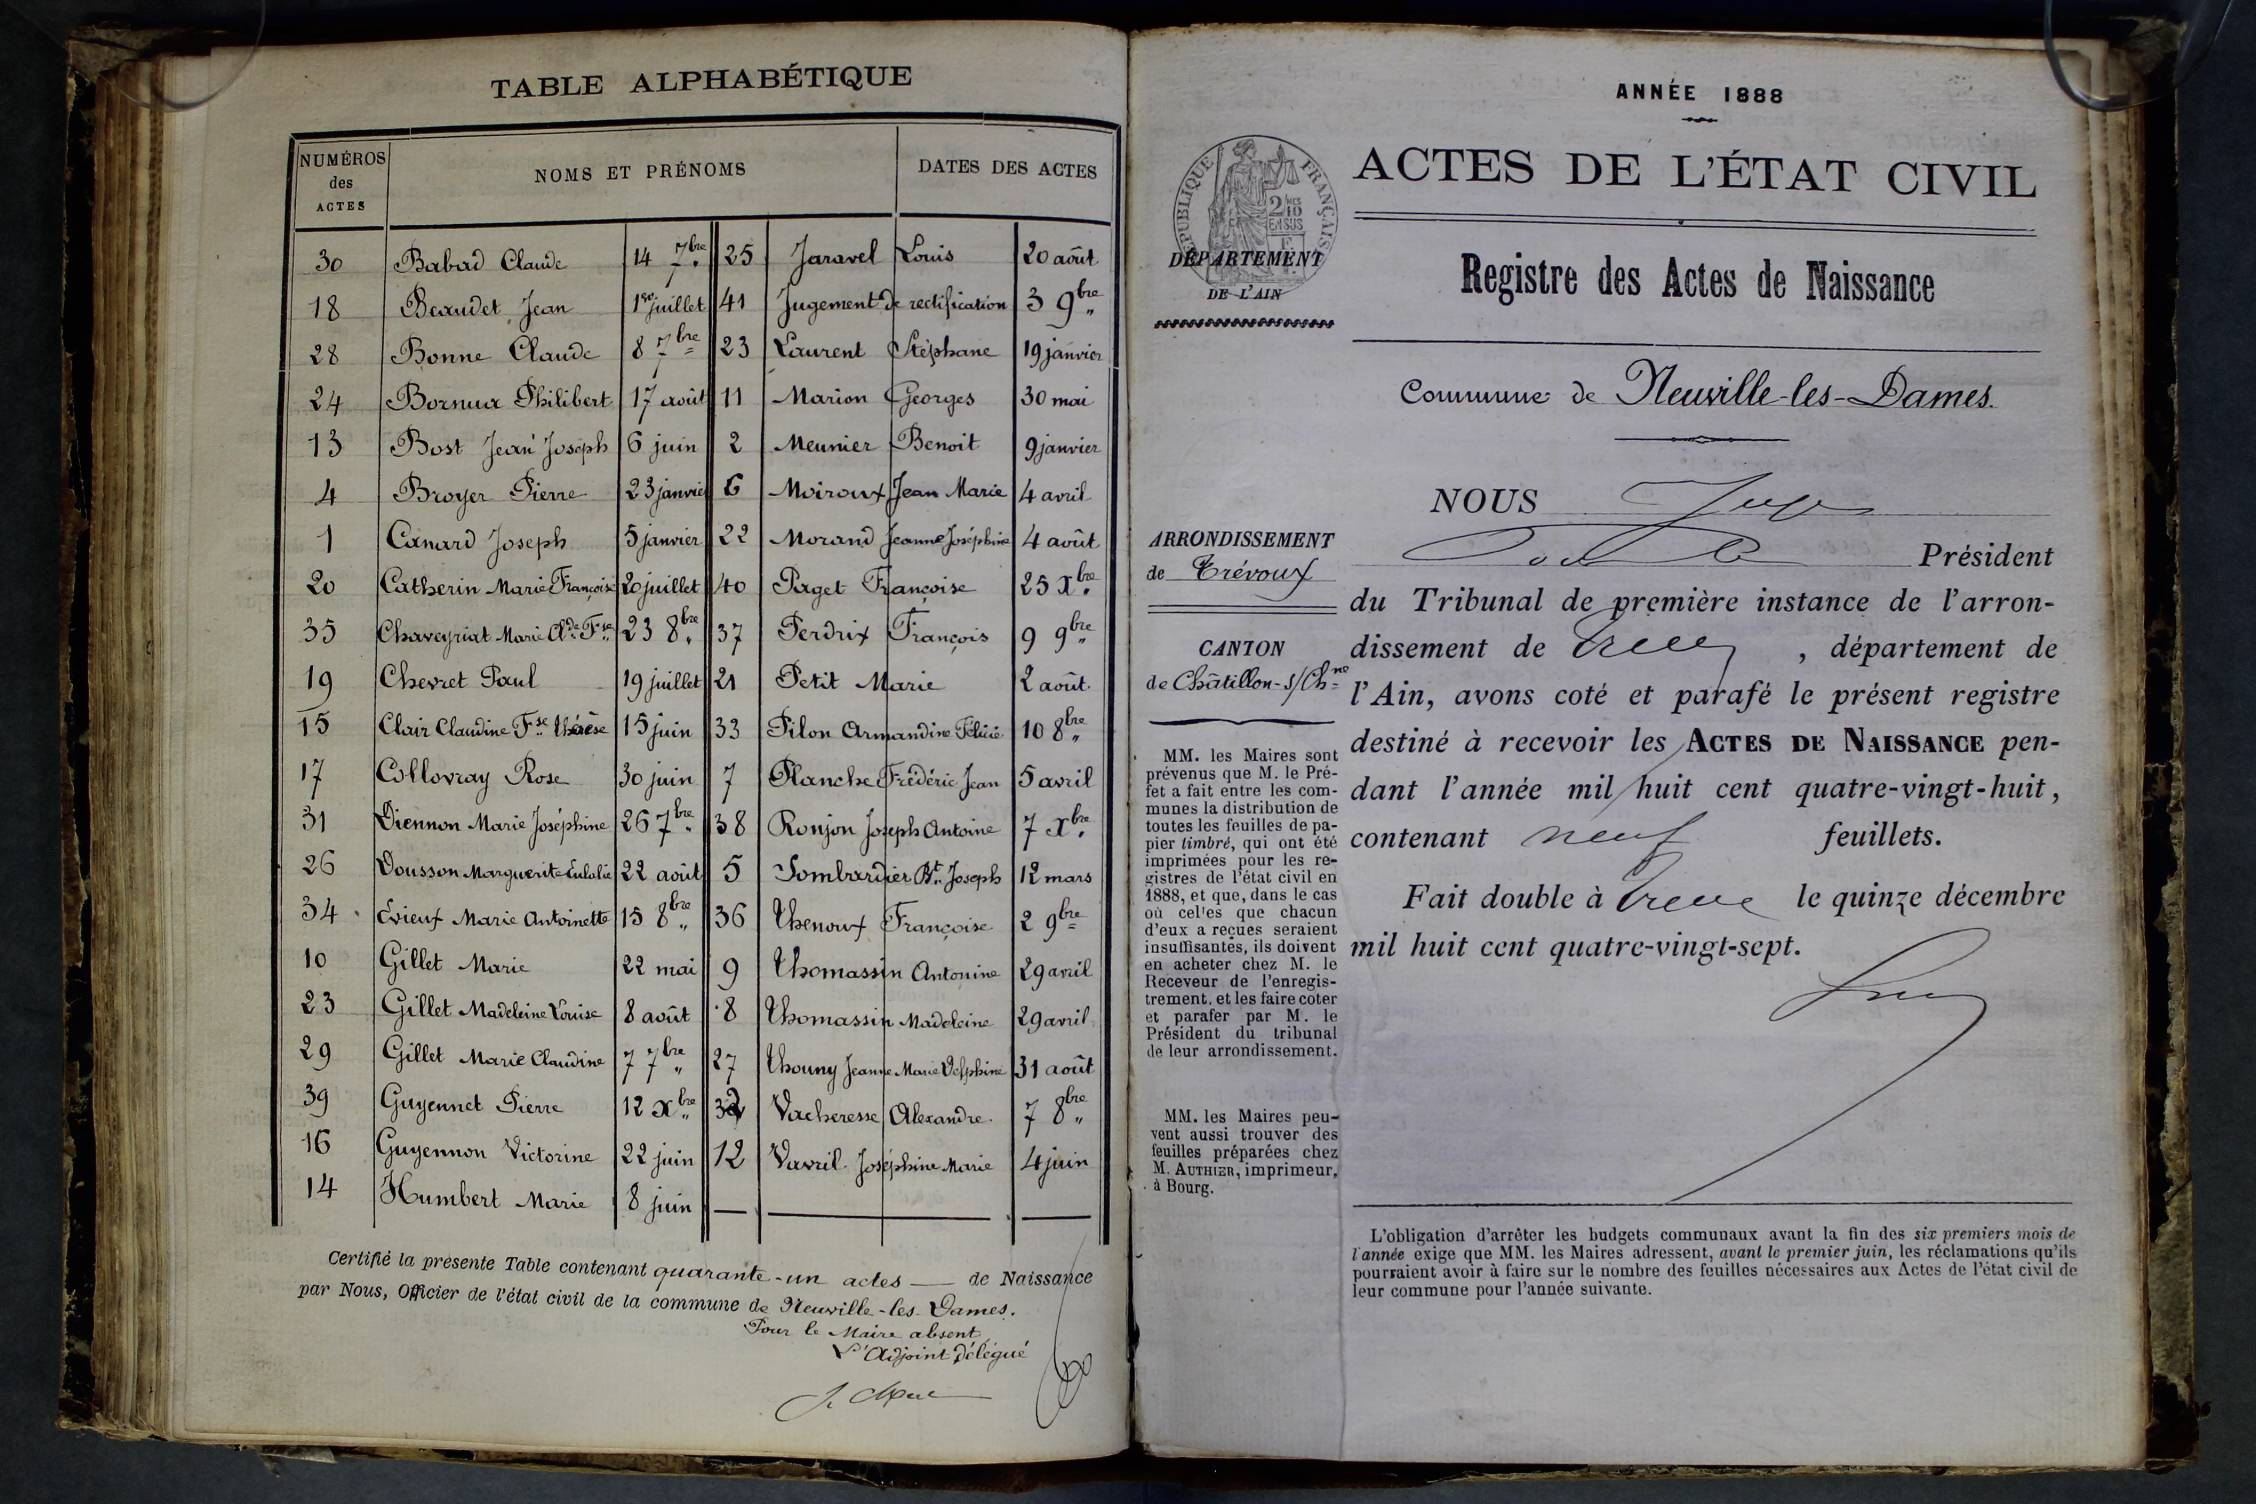 TABLE ALPHABÉTIQUE
NUMÉROS
des
ACTES
NOMS ET PRÉNOMS
DATES DES ACTES
30 Babad Claude 14 7bre
18 Beaudet Jean 1er juillet
28 Bonne Claude 8 7bre
24 Bornua Philibert 17 août
13 Bost Jean Joseph 6 juin
4 Broyer Pierre 23 janvier
1 Canard Joseph 5 janvier
20 Catherin Marie Françoise 20 juillet
35 Chaveyriat Marie Ade Fse 23 8bre
19 Chevret Paul 19 juillet
15 Clair Claudine Fse Thérèse 15 juin
17 Collovray Rose 30 juin
31 Diennon Marie Joséphine 26 7bre
26 Dousson Marguerite Eulalie 22 août
34 Evieux Marie Antoinette 15 8bre
10 Gillet Marie 22 mai
23 Gillet Madeleine Louise 8 août
29 Gillet Marie Claudine 7 7bre
39 Guyennet Pierre 12 Xbre
16 Guyennon Victorine 22 juin
14 Humbert Marie 8 juin
25 Jaravel Louis 20 août
41 Jugement de rectification 3 9bre
23 Laurent Stéphane 19 janvier
11 Marion Georges 30 mai
2 Meunier Benoit 9 janvier
6 Moiroux Jean Marie 4 avril
22 Morand Jeanne Joséphine 4 août
40 Paget Françoise 25 Xbre
37 Perdrix François 9 9bre
21 Petit Marie 2 août
33 Pilon Armandine Félicie 10 8bre
7 Planche Frédéric Jean 5 avril
38 Ronjon Joseph Antoine 7 Xbre
5 Sombardier Bt Joseph 12 mars
36 Thenoux Françoise 2 9bre
9 Thomassin Antonine 29 avril
8 Thomassin Madeleine 29 avril
27 Thouny Jeanne Marie Delphine 31 août
32 Vacheresse Alexandre 7 8bre
12 Vavril Joséphine Marie 4 juin
Certifié la présente Table contenant quarante-un actes — de Naissance
par Nous, Officier de l'état civil de la commune de Neuville-les-Dames.
Pour le Maire absent
L'Adjoint délégué
ANNÉE 1888
ACTES DE L'ÉTAT CIVIL
RÉPUBLIQUE FRANÇAISE
2 MES
10
EN SUS
DÉPARTEMENT
DE L'AIN
Registre des Actes de Naissance
Commune de Neuville-les-Dames.
ARRONDISSEMENT
de Trévoux
CANTON
de Châtillon-s/Chne
MM. les Maires sont
prévenus que M. le Pré-
fet a fait entre les com-
munes la distribution de
toutes les feuilles de pa-
pier timbré, qui ont été
imprimées pour les re-
gistres de l'état civil en
1888, et que, dans le cas
où celles que chacun
d'eux a reçues seraient
insuffisantes, ils doivent
en acheter chez M. le
Receveur de l'enregis-
trement, et les faire coter
et parafer par M. le
Président du tribunal
de leur arrondissement.
MM. les Maires peu-
vent aussi trouver des
feuilles préparées chez
M. AUTHIER, imprimeur,
à Bourg.
NOUS
Président
du Tribunal de première instance de l'arron-
dissement de , département de
l'Ain, avons coté et parafé le présent registre
destiné à recevoir les ACTES DE NAISSANCE pen-
dant l'année mil huit cent quatre-vingt-huit,
contenant neuf feuillets.
Fait double à le quinze décembre
mil huit cent quatre-vingt-sept.
L'obligation d'arrêter les budgets communaux avant la fin des six premiers mois de
l'année exige que MM. les Maires adressent, avant le premier juin, les réclamations qu'ils
pourraient avoir à faire sur le nombre des feuilles nécessaires aux Actes de l'état civil de
leur commune pour l'année suivante.